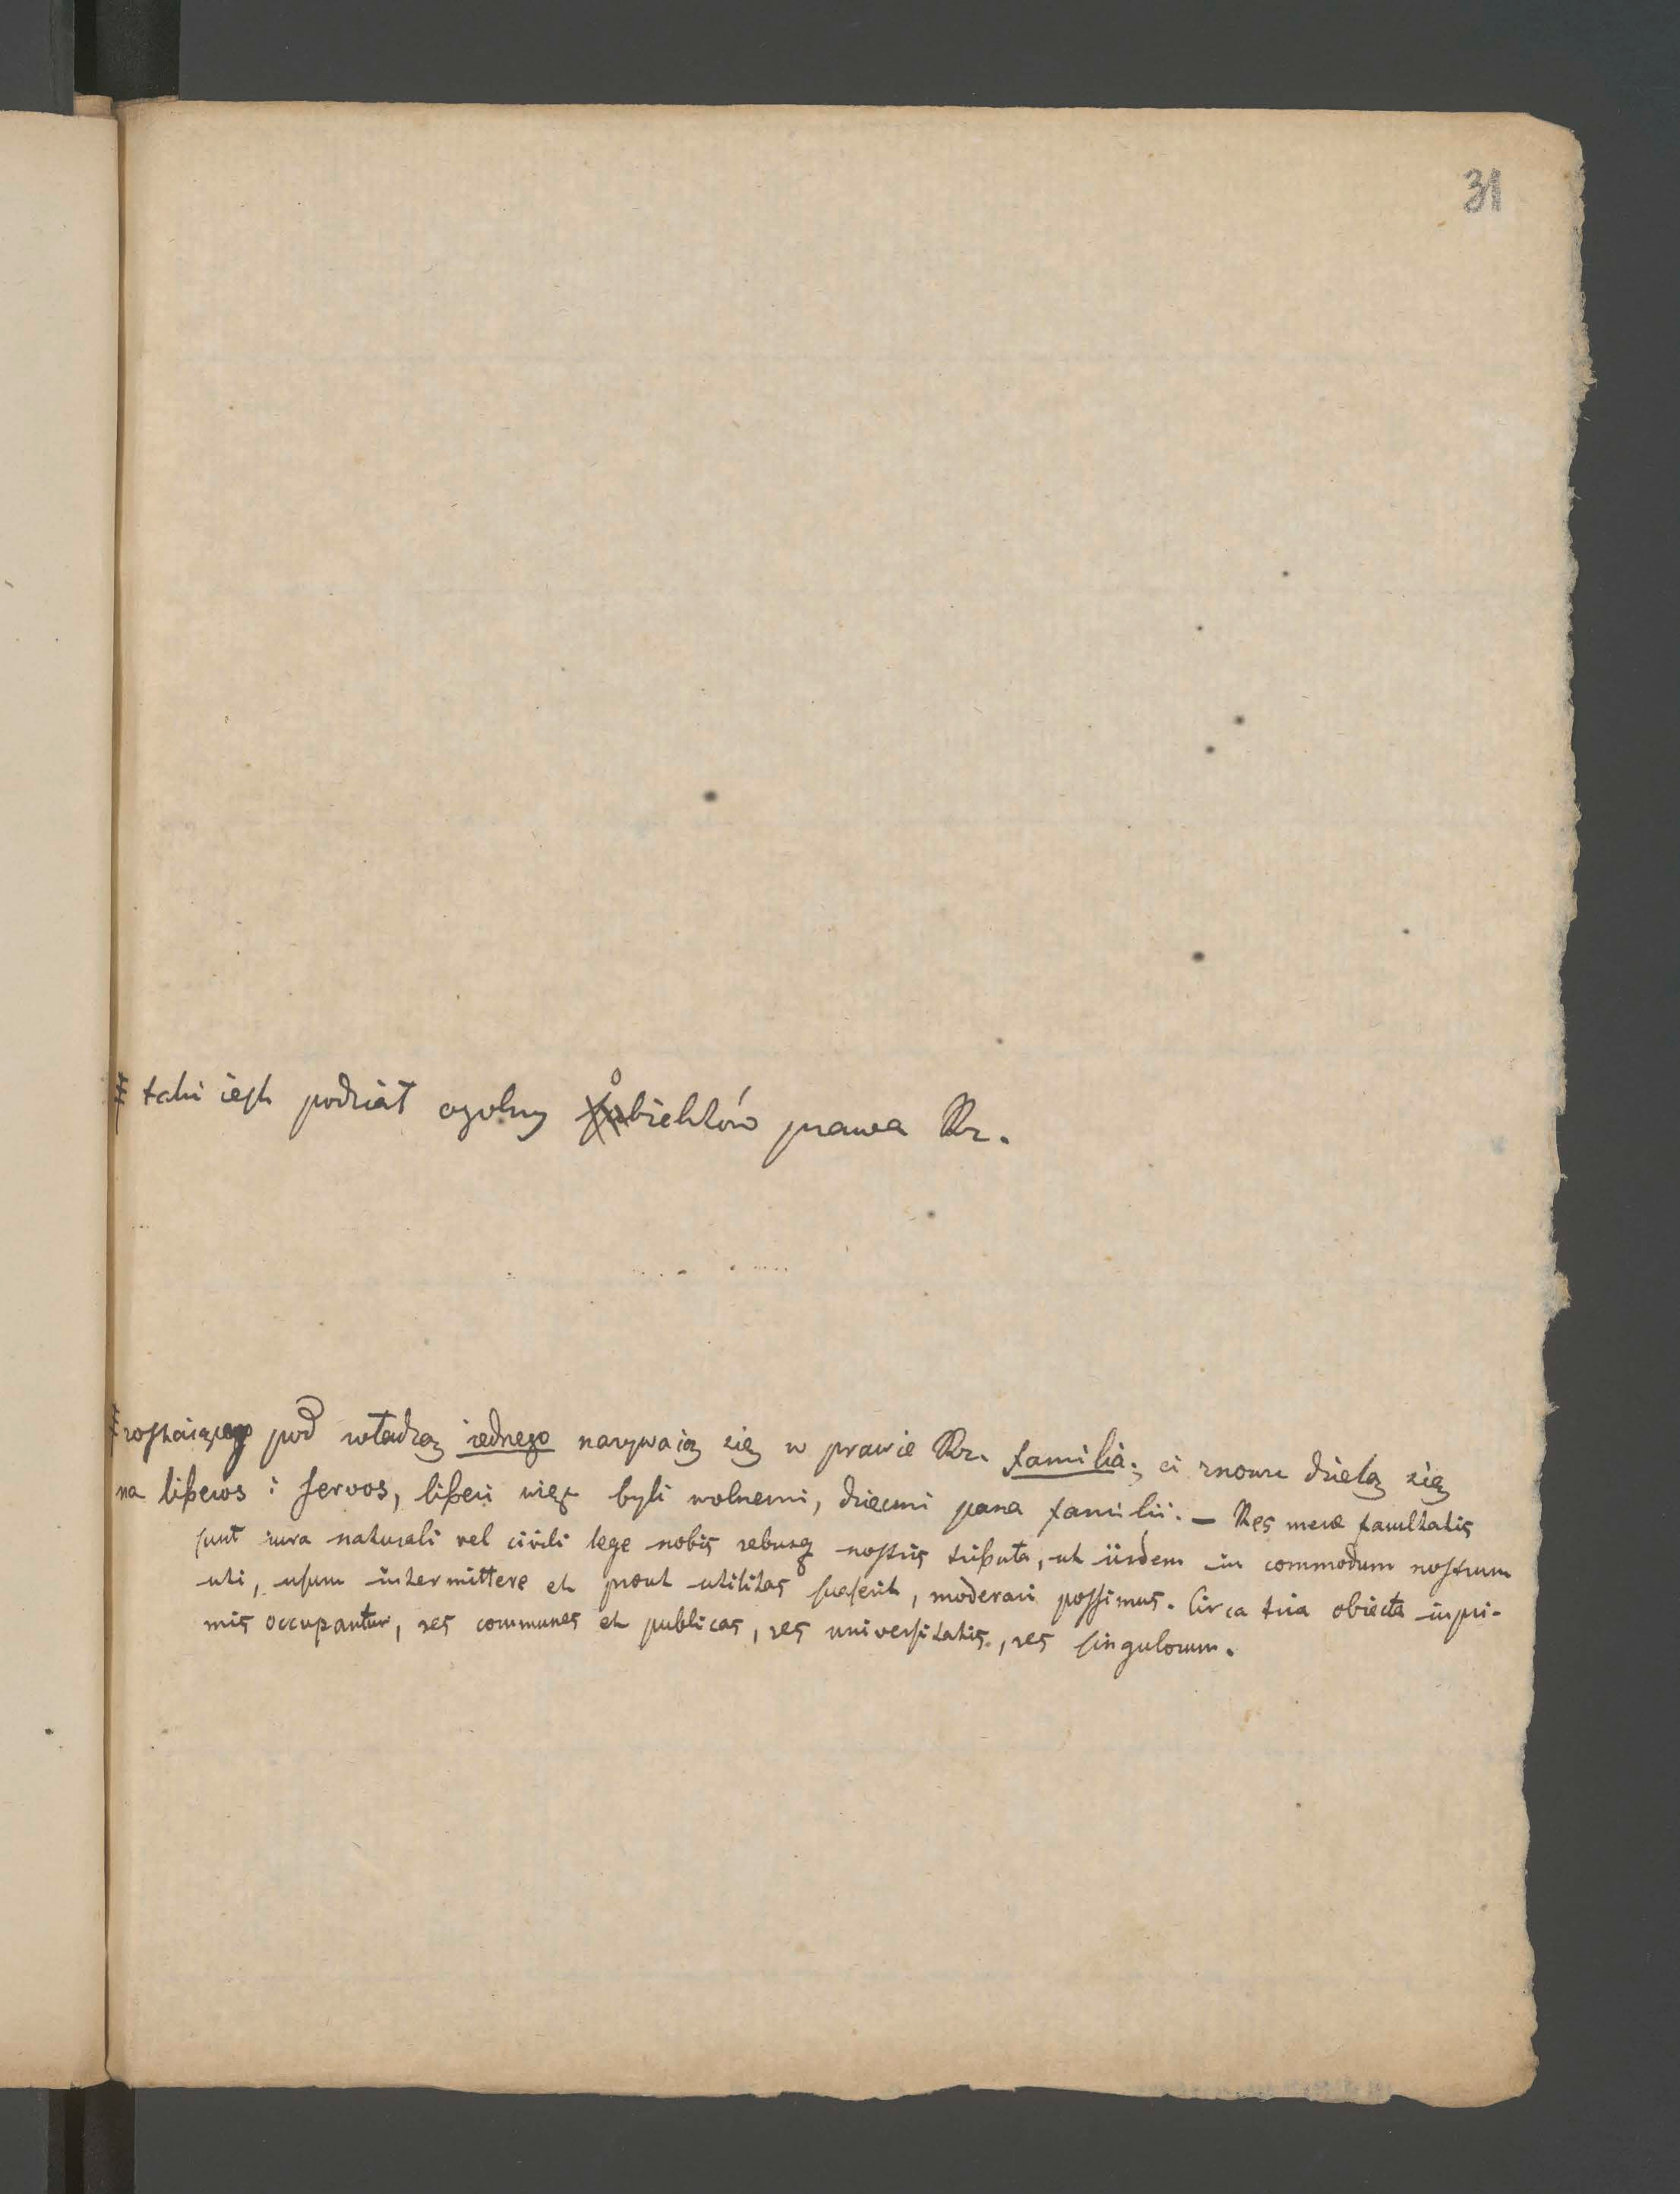 31
# taki iest podział ogolny obiektów prawa Rz.
# zostaiący pod władzą iednego nazywaią się w prawie Rz. familia; ci znowu dzielą się
na liberos i servos, liberi więc byli wolnemi, dziećmi pana familii. – Res meræ facultatis
sunt iura naturali vel civili lege nobis rebusq nostris tributa, ut iisdem in commodum nostrum
uti, usum intermittere et prout utilitas suaserit, moderari possimus. Circa tria obiecta inpri-
mis occupantur, res communes et publicas, res universitatis, res singulorum.